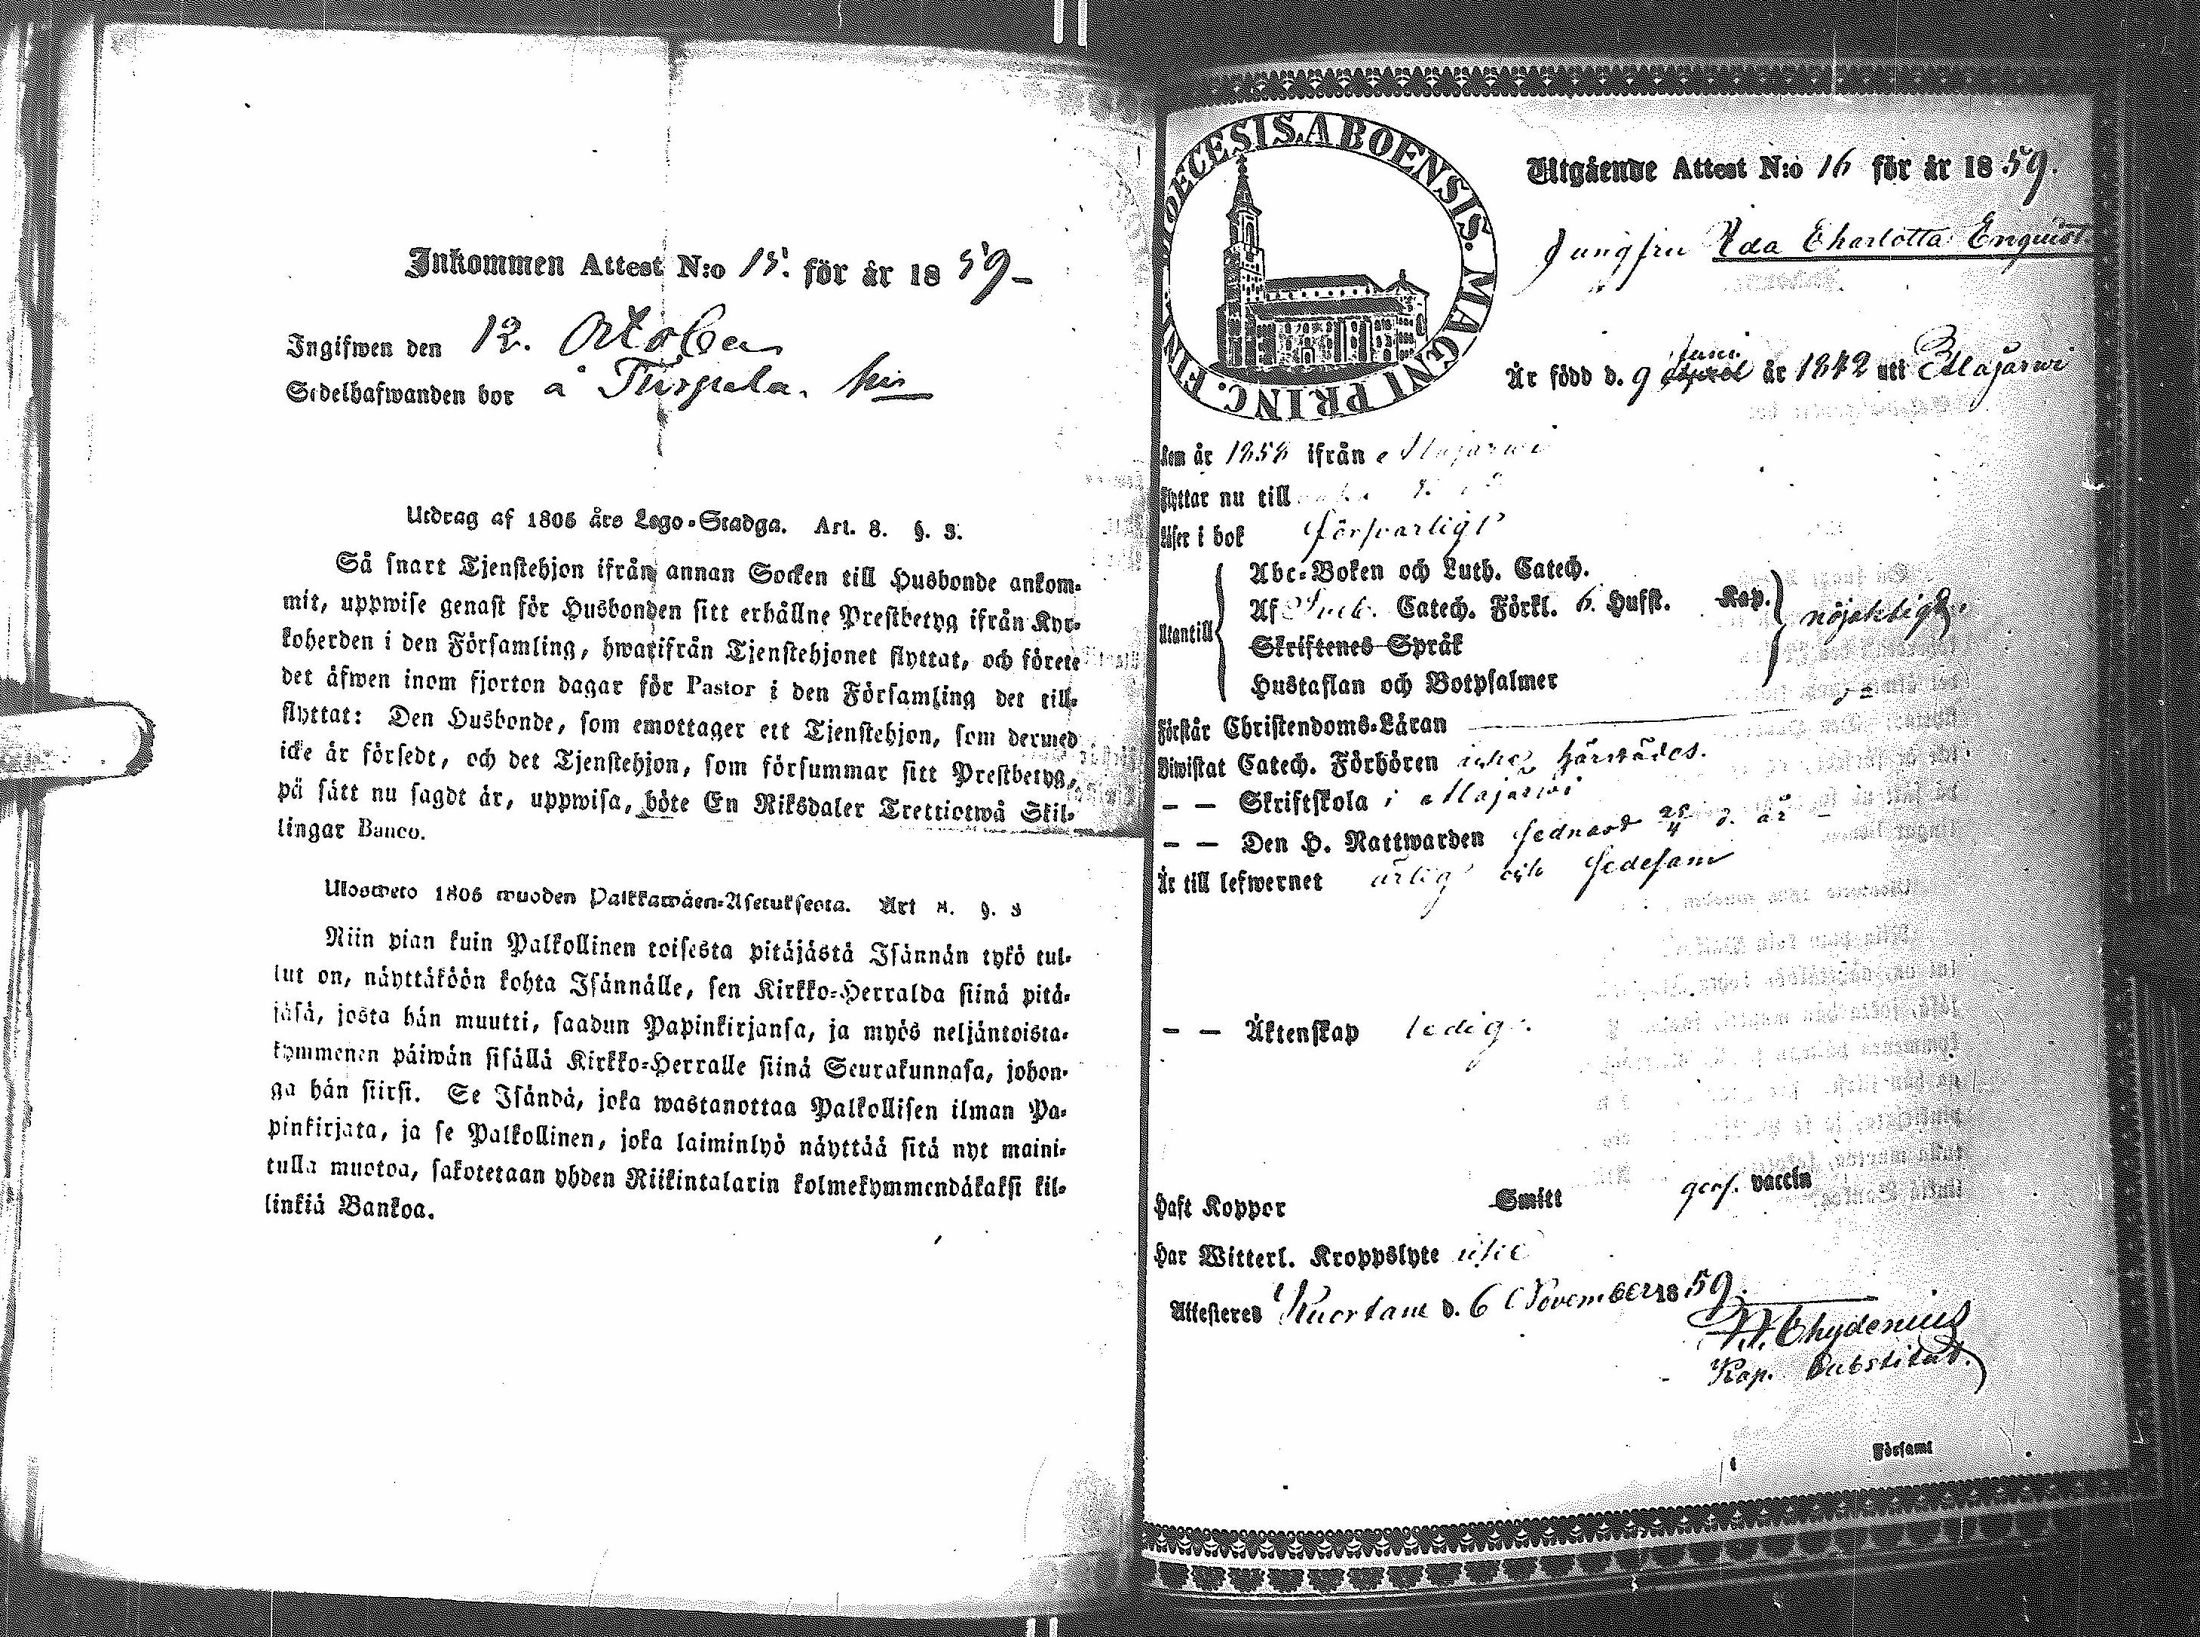 Inkommen Attest N:o 15. för år 1859 –
Ingifwen den 12. October
Sedelhafwanden bor å
Utdrag af 1805 års Lego-Stadga. Art. 8. §. 3.
Så snart Tjenstehjon ifrån annan Socken till Husbonde ankom-
mit, uppwise genast för Husbonden sitt erhållne Prestbetyg ifrån Kyr-
koherden i den Församling, hwarifrån Tjenstehjonet flyttat, och förete
det äfwen inom fjorton dagar för Pastor i den Församling det till-
flyttat: Den Husbonde, som emottager ett Tjenstehjon, som dermed
icke är försedt, och det Tjenstehjon, som försummar sitt Prestbetyg,
på sätt nu sagdt är, uppwisa, böte En Riksdaler Trettiotwå Skil-
lingar Banco.
Ulosweto 1805 wuoden Palkkawäen-Asetuksesta. Art 8. §. 3
Niin pian kuin Palkollinen toisesta pitäjästä Isännän tykö tul-
lut on, näyttäköön kohta Isännälle, sen Kirkko-Herralda siinä pitä-
jäsä, josta hän muutti, saadun Papinkirjansa, ja myös neljäntoista-
kymmenen päiwän sisällä Kirkko-Herralle siinä Seurakunnasa, johon-
ga hän siirsi. Se Isändä, joka wastanottaa Palkollisen ilman Pa-
pinkirjata, ja se Palkollinen, joka laiminlyö näyttää sitä nyt maini-
tulla muotoa, sakotetaan yhden Riikintalarin kolmekymmendäkaksi kil-
linkiä Bankoa.
DIOECESIS ABOENSIS. MAGNI PRINC. FINL
Utgående Attest N:o 16 för år 1859.
Jungfru Ida Charlotta Enquist
Är född d. 9 Juni April år 1842 uti Etlajärwi
Kom år 1858 ifrån Etlajärwi
Flyttar nu till
Läser i bok försvarligt
Abc-Boken och Luth. Catech.
Af Catech. Förkl. 6. Hufst. Kap.
Utantill nöjaktigt.
Skriftenes Språk
Hustaflan och Botpsalmer
Förstår Christendoms-Läran
Biwistat Catech. Förhören icke härstädes.
– – Skriftskola i Etlajärwi
– – Den H. Nattwarden sednast 25/4 d. år
Är till lefwernet ärlig och sedesam
– – Äktenskap ledig.
Haft Koppor Smitt gen. vaccin
Har Witterl. Kroppslyte icke
Attesteres Kuortane d. 6 November 1859.
Chydenius
Kap. Substitut.
Församl